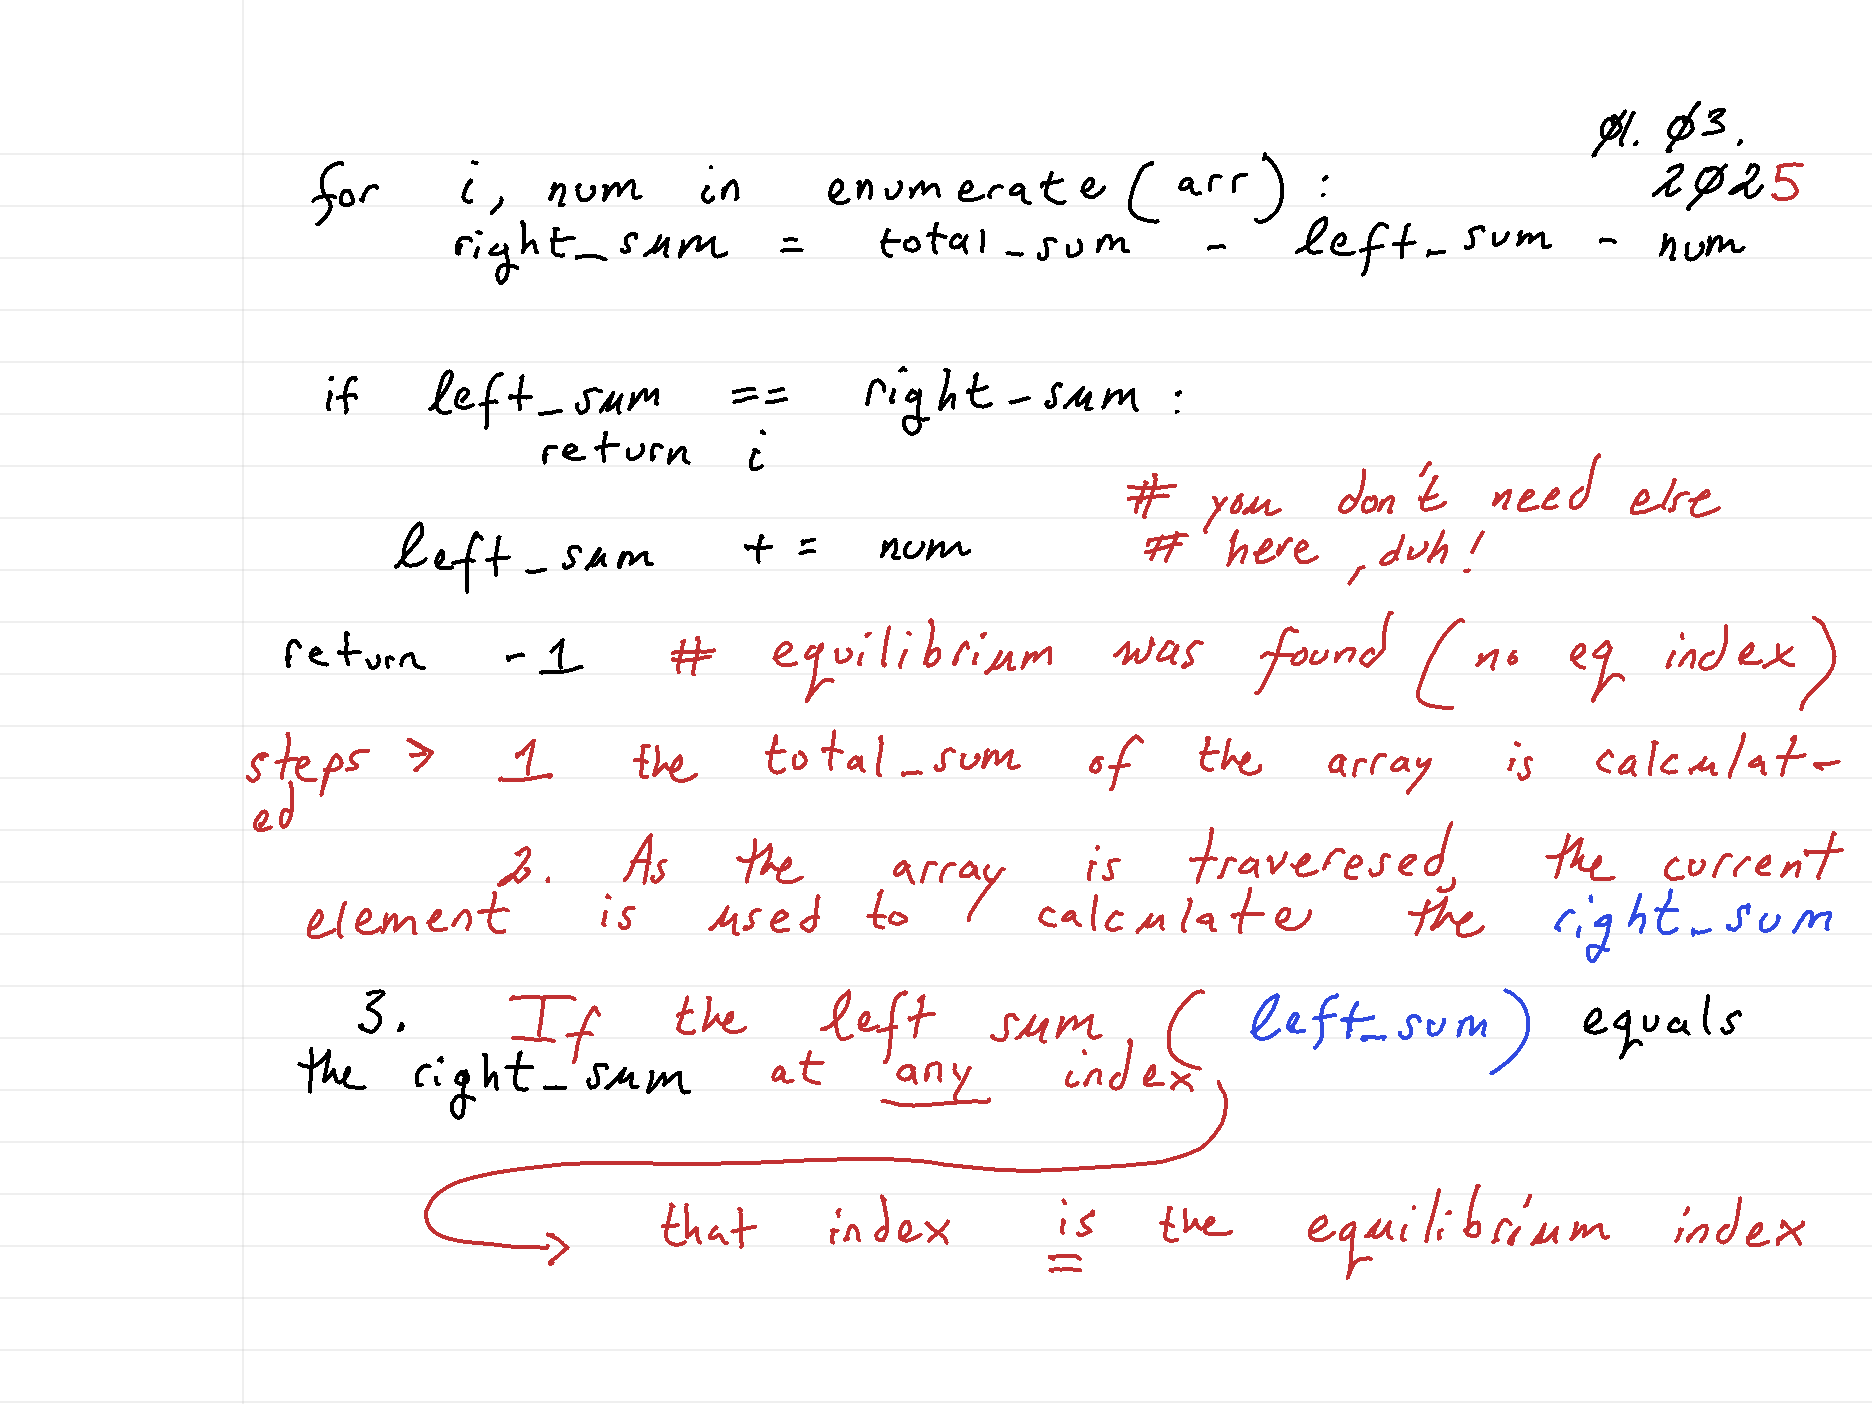 01. 03.
for i, num in enumerate(arr): 2025
right_sum = total_sum - left_sum - num
if left_sum == right-sum:
return i
# you don't need else
left_sum += num # here, duh!
return -1 # equilibrium was found (no eq index)
steps > 1 the total_sum of the array is calculat-
ed
2. As the array is traveresed, the current
element is used to calculate the right_sum
3. If the left sum (left_sum) equals
the right_sum at any index,
that index is the equilibrium index